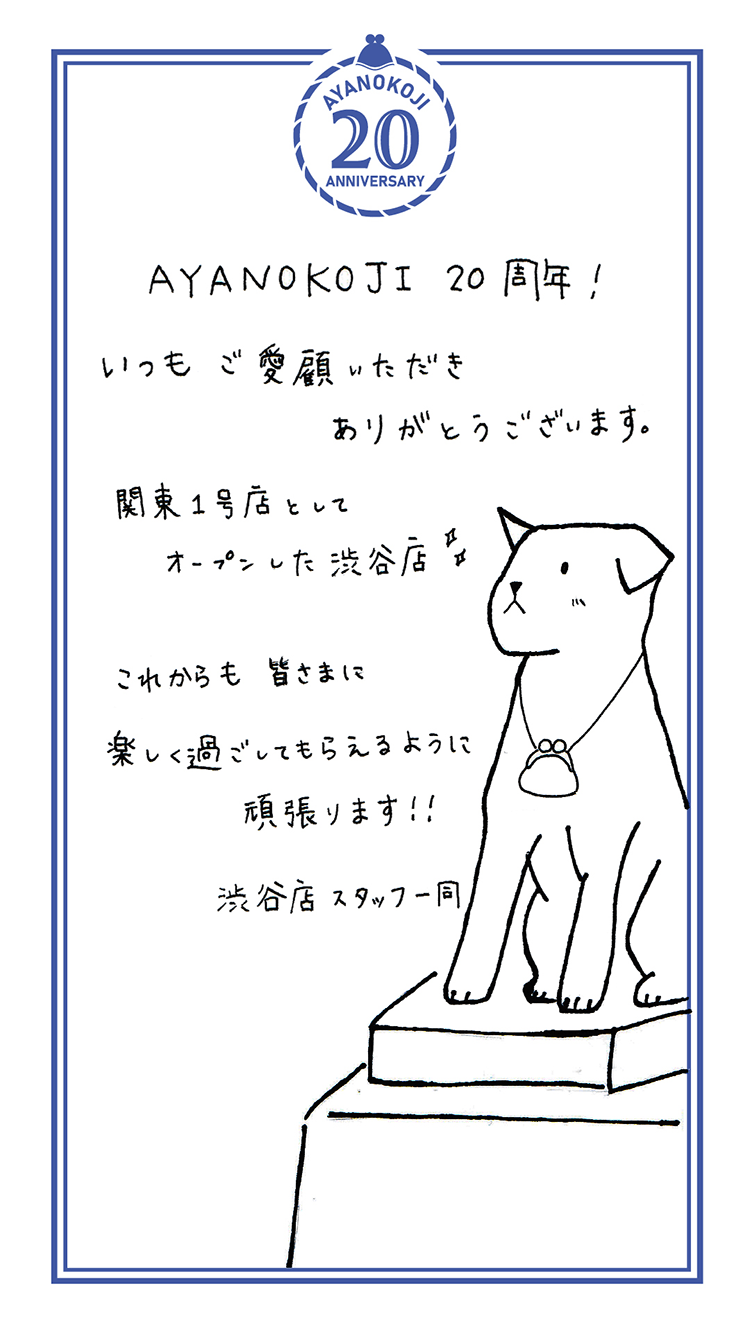 AYANOKOJI
20
ANNIVERSARY
AYANOKOJI 20周年！
いつも ご愛顧いただき
ありがとうございます。
関東1号店として
オープンした渋谷店
これからも 皆さまに
楽しく過ごしてもらえるように
頑張ります！！
渋谷店スタッフ一同